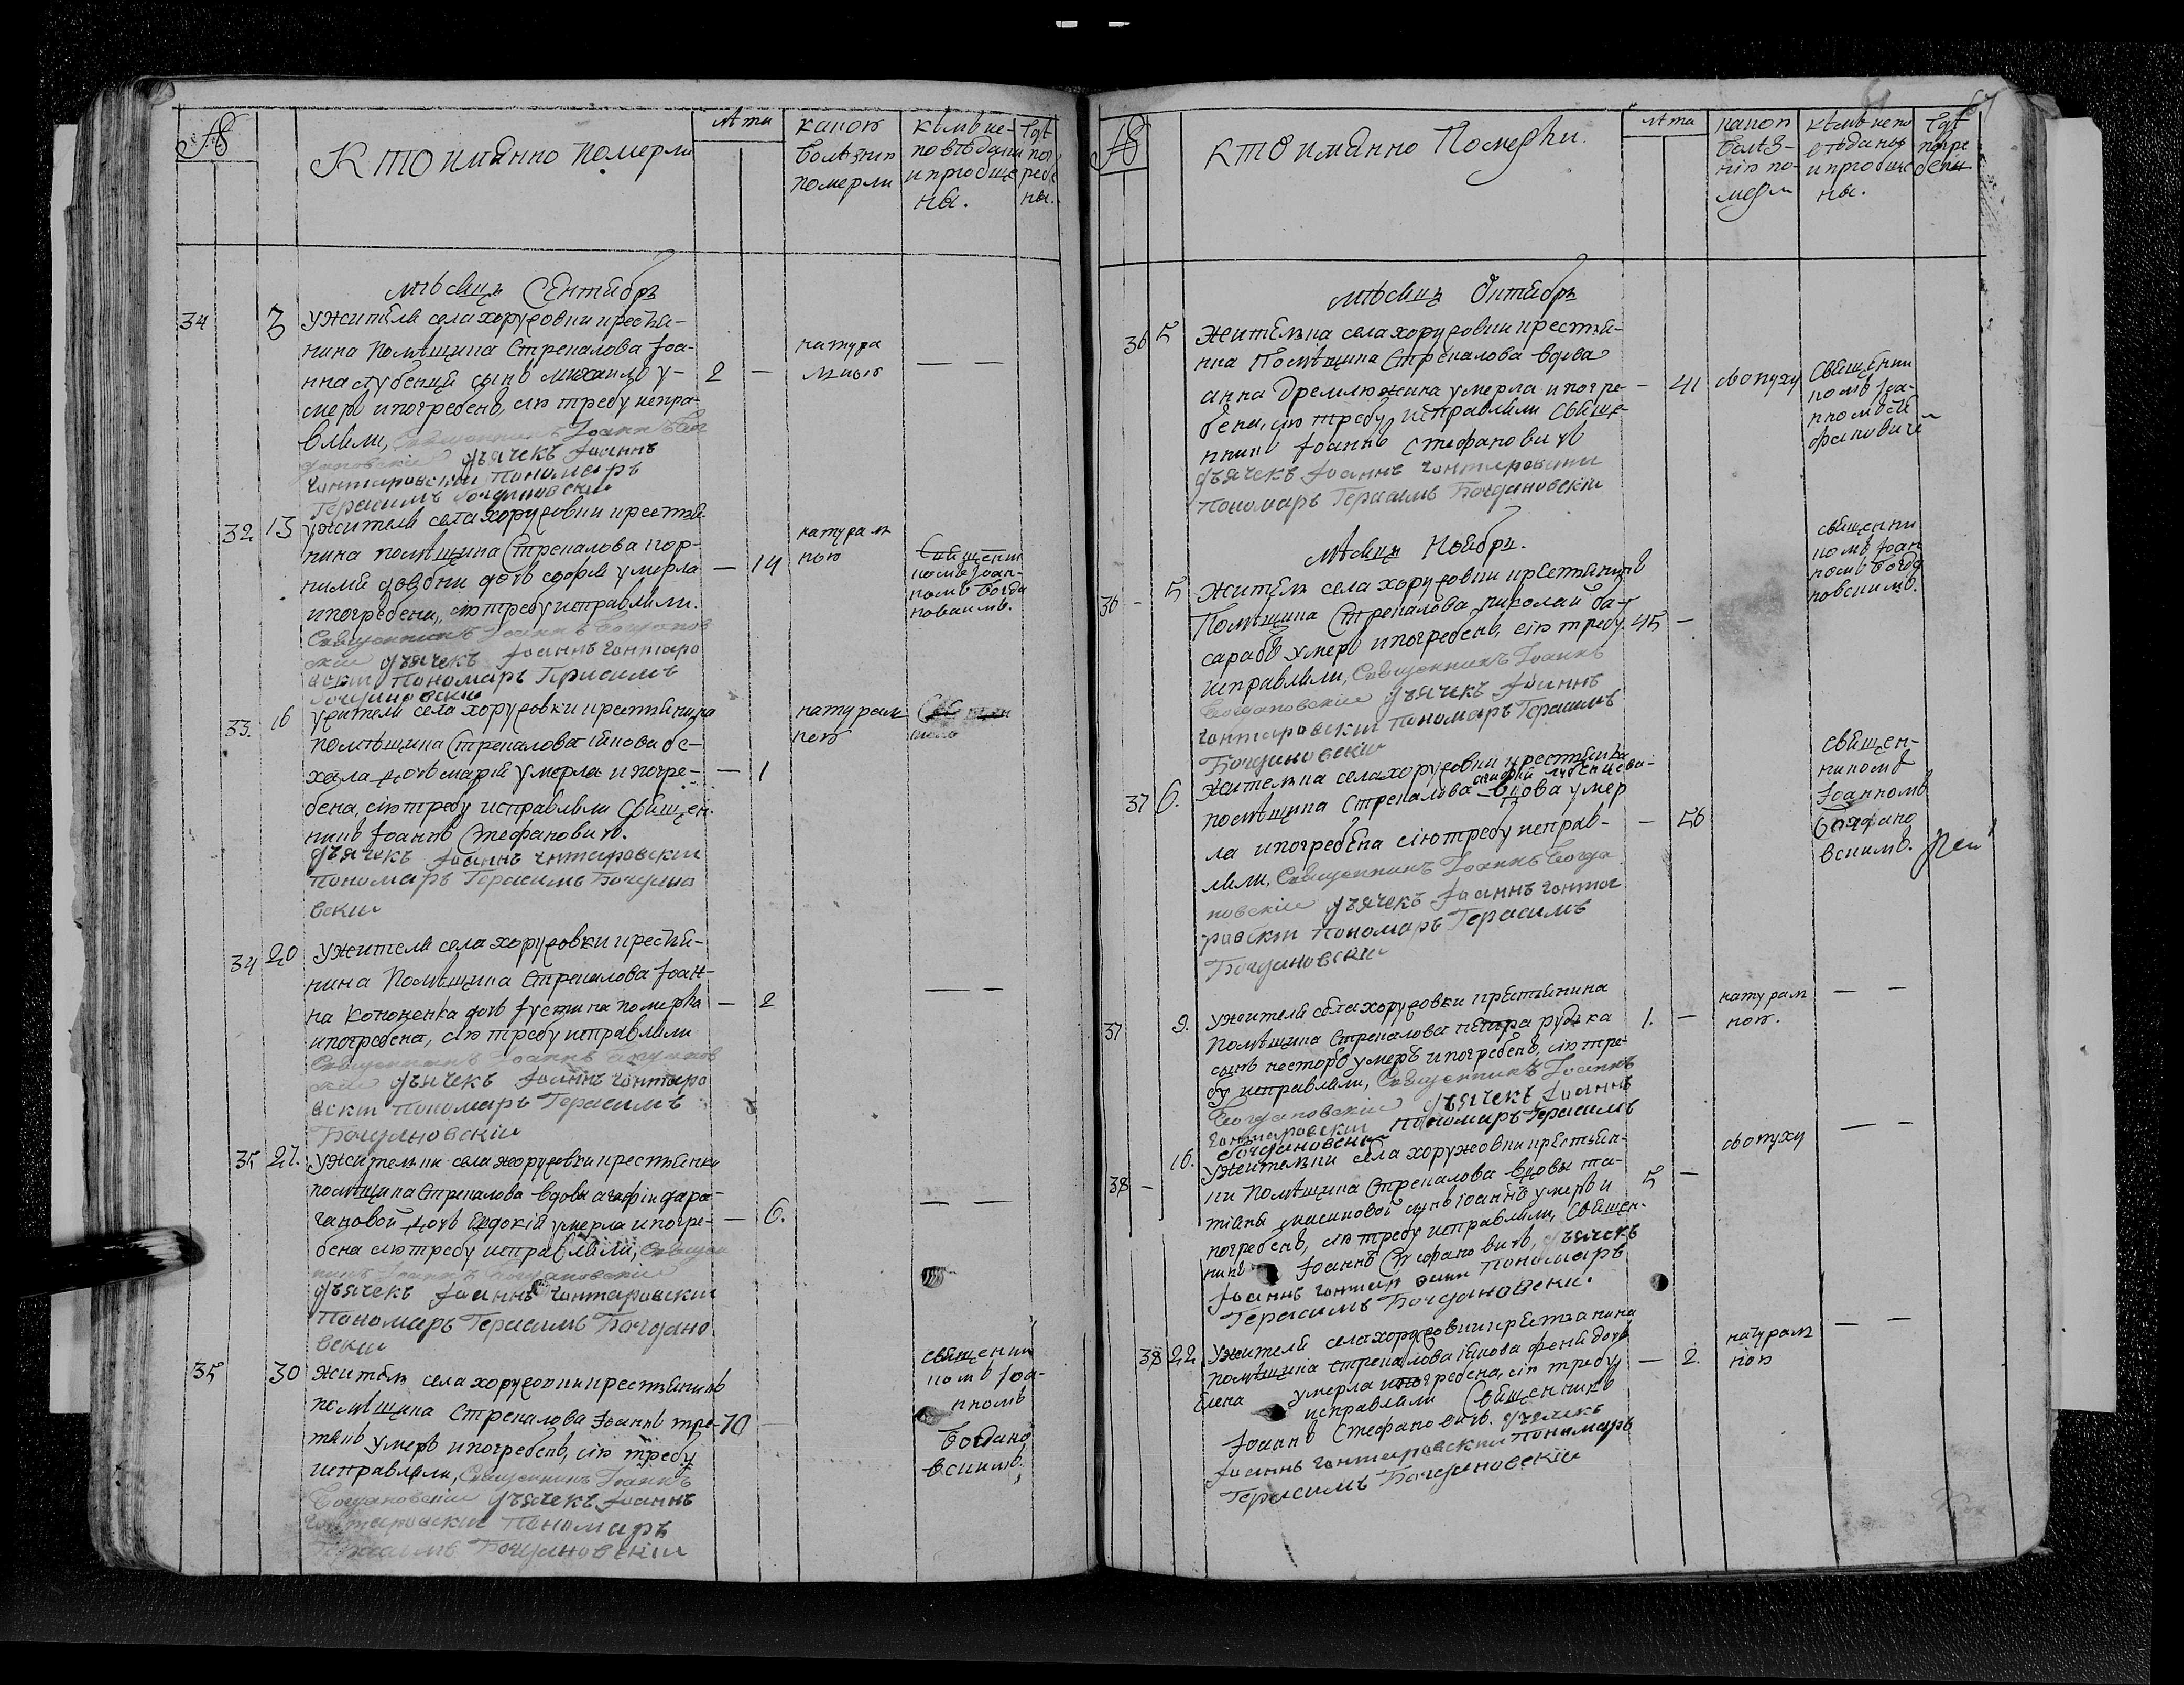 Кто имянно померли
лѣта
какою
болѣзнію
померли
кѣмъ ис-
повѣданы
и приобще
ны.
гдѣ
пог
ребе
ны.
мѣсяцъ Сентябрь
34
3
у жителя села хоружовки крестья-
нина помѣщика Стрекалова Іоа-
нна сынъ михаилъ у-
меръ и погребенъ, сію требу испра-
вляли, Священникъ Іоаннъ Бог
дановскій дьячекъ Іоаннъ
Гонтаровскій Пономарь
Герасимъ Богдановскій
2
—
натура
льною
— —
32
13
у жителя села хоружовки крестья
нина помѣщика Стрекалова кор-
нилія довбни дочь умерла
и погребена, сію требу исправляли.
Священникъ Іоаннъ Богданов
скій дьячекъ Іоаннъ Гонтаро
вскій Пономарь Герасимъ
Богдановскій
—
14
натураль
ною
Священни
комъ Іоан-
номъ Богда
новскимъ.
33
16
у жителя села хоружовки крестьянина
помѣщика Стрекалова
дочь марія умерла и погре-
бена, сію требу исправляли Священ-
никъ Іоаннъ Стефановичъ.
дьячекъ Іоаннъ Гонтаровскій
Пономарь Герасимъ Богдано
вскій
—
1
натураль
ною
34
20
у жителя села хоружовки крестья-
нина Помѣщика Стрекалова Іоан-
на Кононенка дочь Іустина померла
и погребена, сію требу исправляли
Священникъ Іоаннъ Богданов
скій дьячекъ Іоаннъ Гонтаро
вскій Пономарь Герасимъ
Богдановскій
—
2
— —
35
27.
у жительки села хоружовки крестьянки
помѣщика Стрекалова вдовы агафіи
дочь Евдокія умерла и погре-
бена сію требу исправляли, Священ
никъ Іоаннъ Богдановскій
дьячекъ Іоаннъ Гонтаровскій
Пономарь Герасимъ Богдано
вскій
—
6.
— —
35
30
житель села хоружовки крестьянинъ
помѣщика Стрекалова Іоаннъ тре-
тякъ умеръ и погребенъ, сію требу
исправляли, Священникъ Іоаннъ
Богдановскій дьячекъ Іоаннъ
Гонтаровскій Пономарь
Герасимъ Богдановскій
70
священни
комъ Іоа-
нномъ
Богдано
вскимъ.
Кто имянно Померли.
лѣта
какою
болѣз-
нію по-
мерли
кѣмъ испо
вѣданы
и приобще
ны.
гдѣ
погре
бены
мѣсяцъ Октябрь
36
5
жителька села хоружовки крестьян-
ка Помѣщика Стрекалова вдова
анна Дремлюжина умерла и погре-
бена, сію требу исправляли Свяще-
нникъ Іоаннъ Стефановичъ
дьячекъ Іоаннъ Гонтаровскій
Пономарь Герасимъ Богдановскій
—
41
съ опуху
Священни
комъ Іоа-
нномъ Сте
фановиче
Мѣсяцъ Ноябрь.
36
—
5
житель села хоружовки крестьянинъ
Помѣщика Стрекалова николай ба-
сарабъ умеръ и погребенъ, сію требу
исправляли, Священникъ Іоаннъ
Богдановскій дьячекъ Іоаннъ
Гонтаровскій Пономарь Герасимъ
Богдановскій
45
—
священни
комъ Іоан
номъ Богда
новскимъ.
37
6.
жителька села хоружовки крестьянка
помѣщика Стрекалова вдова умер
ла и погребена сію требу исправ-
ляли, Священникъ Іоаннъ Богда
новскій дьячекъ Іоаннъ Гонта
ровскій Пономарь Герасимъ
Богдановскій
—
56
священ-
никомъ
Іоанномъ
Богдано
вскимъ.
37
9.
у жителя села хоружовки крестьянина
Помѣщика Стрекалова петра рудька
сынъ несторъ умеръ и погребенъ, сію тре-
бу исправляли, Священникъ Іоаннъ
Богдановскій дьячекъ Іоаннъ
Гонтаровскій Пономарь Герасимъ
Богдановскій
1.
—
натураль
ною.
— —
38
—
16.
у жительки села хоружовки крестьян-
ки Помѣщика Стрекалова вдовы та-
тіаны сынъ Іоаннъ умеръ и
погребенъ, сію требу исправляли, Священ-
никъ Іоаннъ Стефановичъ, дьячекъ
Іоаннъ Пономарь
Герасимъ Богдановскій.
5
—
съ опуху
— —
38
22
у жителя села хоружовки крестьянина
помѣщика Стрекалова дочь
умерла и погребена, сію требу
исправляли Священникъ
Іоаннъ Стефановичъ. дьячекъ
Іоаннъ Гонтаровскій Пономарь
Герасимъ Богдановскій
—
2.
натураль
ною
— —